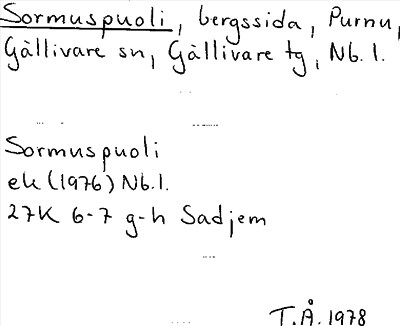 Sormuspuoli, bergssida, Purnu,
Gällivare sn, Gällivare tg, Nb. l.
Sormuspuoli
ek (1976) Nb. l.
27K 6-7 g-h Sadjem
T.Å. 1978